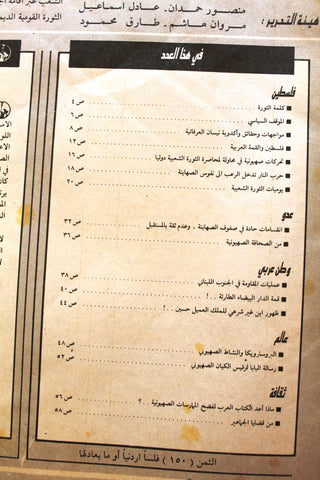 هيئة التحرير :
منصور حمدان. عادل اسماعيل
مروان هاشم. طارق محمود
الثورة القومية الديـ
في هذا العدد
فلسطين
■ كلمة الثورة ص ٤
■ الموقف السياسي ص ٦
■ مواجهات وحقائق وأكذوبة نيسان العرفاتية ص ٨
■ فلسطين والقمة العربية ص ١٢
■ تحركات صهيونية في محاولة لمحاصرة الثورة الشعبية دوليا ص ١٦
■ حرب النار تدخل الرعب الى نفوس الصهاينة ص ١٨
■ يوميات الثورة الشعبية ص ٢٠
عدو
■ انقسامات حادة في صفوف الصهاينة , وعدم ثقة بالمستقبل ص ٣٢
■ من الصحافة الصهيونية ص ٣٦
وطن عربي
■ عمليات المقاومة في الجنوب اللبناني ص ٣٨
■ قمة الدار البيضاء الطارئة ..! ص ٤٠
■ ظهور ابن غير شرعي للملك العميل حسين ..! ص ٤٤
عالم
■ البروسترويكا والنشاط الصهيوني ص ٤٨
■ رسالة البابا لرئيس الكيان الصهيوني ص ٥٢
ثقافة
■ ماذا أعد الكتاب العرب لفضح الممارسات الصهيونية ..؟ ص ٥٦
■ من قضايا الجماهير ص ٥٨
الثمن ( ١٥٠ ) فلسا اردنياً أو ما يعادلها